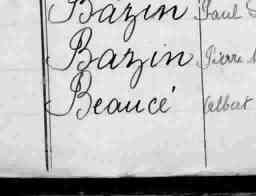 Bazin Paul
Bazin Pierre
Beaucé Albert